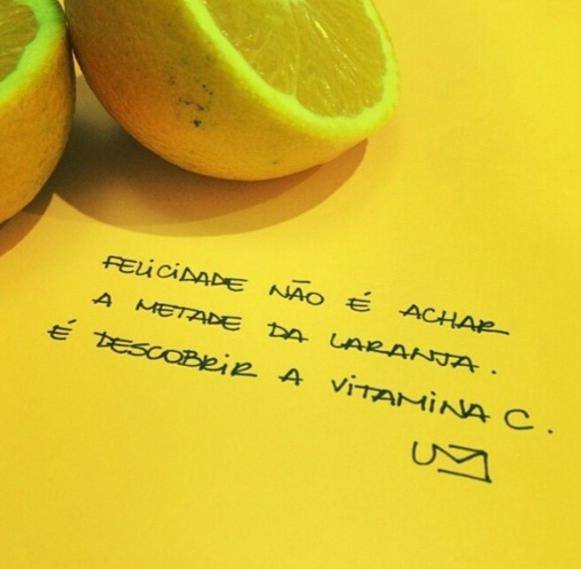 FELICIDADE NÃO É ACHAR
A METADE DA LARANJA.
É DESCOBRIR A VITAMINA C.
UM